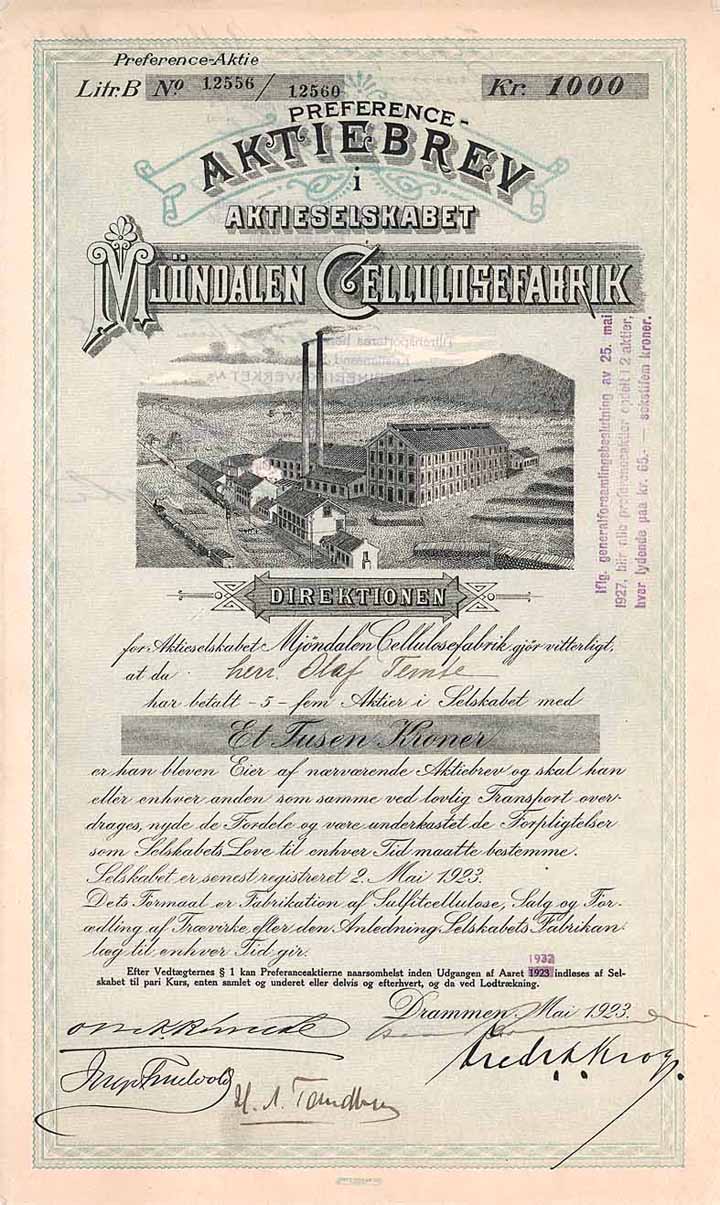 Preference-Aktie
Litr. B No 12556 / 12560 Kr. 1000
PREFERENCE-
AKTIEBREV
i
AKTIESELSKABET
MJÖNDALEN CELLULOSEFABRIK
Iflg. generalforsamlingsbeslutning av 25. mai
1927, blir alle preferenceaktier opdelt i 2 aktier,
hver lydende paa kr. 65.— sekstifem kroner.
DIREKTIONEN
for Aktieselskabet Mjöndalen Cellulosefabrik gjör vitterligt,
at da herr. Olaf
har betalt - 5 - fem Aktier i Selskabet med
Et Tusen Kroner
er han bleven Eier af nærværende Aktiebrev og skal han
eller enhver anden som samme ved lovlig Transport over-
drages, nyde de Fordele og være underkastet de Forpligtelser
som Selskabets Love til enhver Tid maatte bestemme.
Selskabet er senest registreret 2. Mai 1923.
Dets Formaal er Fabrikation af Sulfitcellulose, Salg og For-
ædling af Trævirke efter den Anledning Selskabets Fabrikan-
læg til enhver Tid gir.
1932
Efter Vedtægternes § 1 kan Preferanceaktierne naarsomhelst inden Udgangen af Aaret 1923 indløses af Sel-
skabet til pari Kurs, enten samlet og underet eller delvis og efterhvert, og da ved Lodtrækning.
Drammen, Mai 1923.